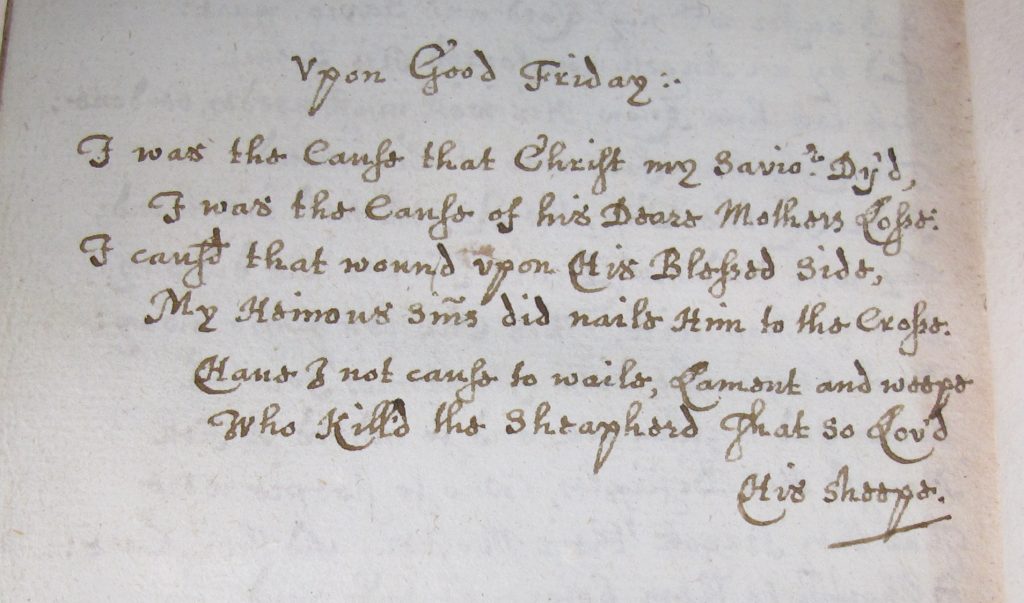 Vpon Good Friday:.
I was the Cause that Christ my Savior: Dy'd,
I was the Cause of his Deare Mothers Losse:
I caus'd that wound vpon His Blessed Side,
My Heinous Sinns did naile Him to the Crosse:
Haue I not cause to waile, Lament and weepe
Who Kill'd the Sheapherd That so Lov'd
His sheepe.